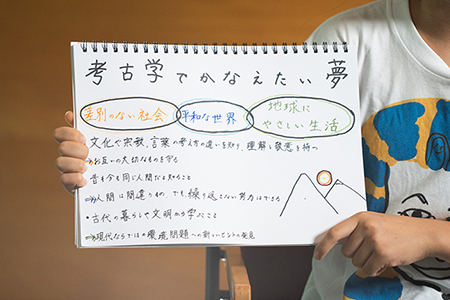 考古学でかなえたい夢
差別のない社会 平和な世界 地球にやさしい生活
文化や宗教、言葉の考え方の違いを知り、理解し敬意を持つ
⇒お互いの大切なものを守る
昔も今も同じ人間だと知ること
⇒人間は間違うもの でも、繰り返さない努力はできる
・古代の暮らしや文明から学ぶこと
⇒現代ならではの環境問題への新しいヒントの発見